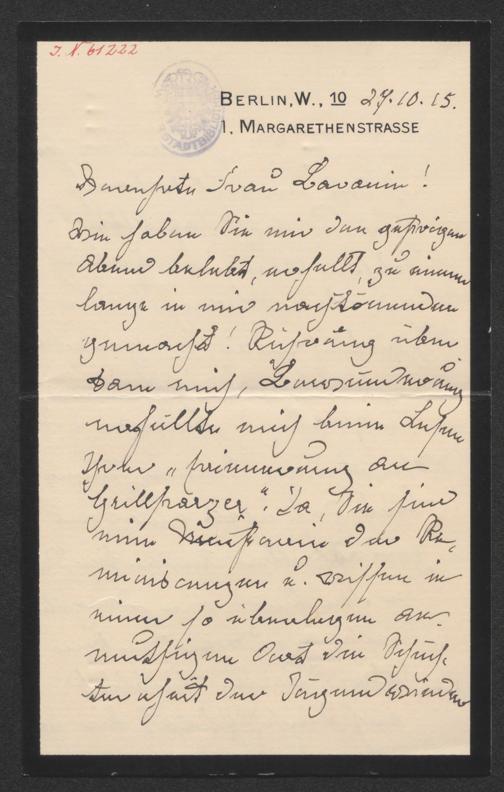 J. N. 61222
STADTBIBL
BERLIN, W., 10 27.10.15.
1. MARGARETHENSTRASSE
Verehrte Frau Baronin!
Wie haben Sie mir den gestrigen
Abend belebt, erfüllt, zu einem
lange in mir nachtönenden
gemacht! Rührung über
kam mich, Bewunderung
erfüllte mich beim Lesen
Ihrer „Erinnerung an
Grillparzer". Ja, Sie sind
eine Künstlerin der Re-
miniscenzen u. wissen in
einer so überlegen an-
muthigen Art die Schüch-
ternheit der Jugend wieder